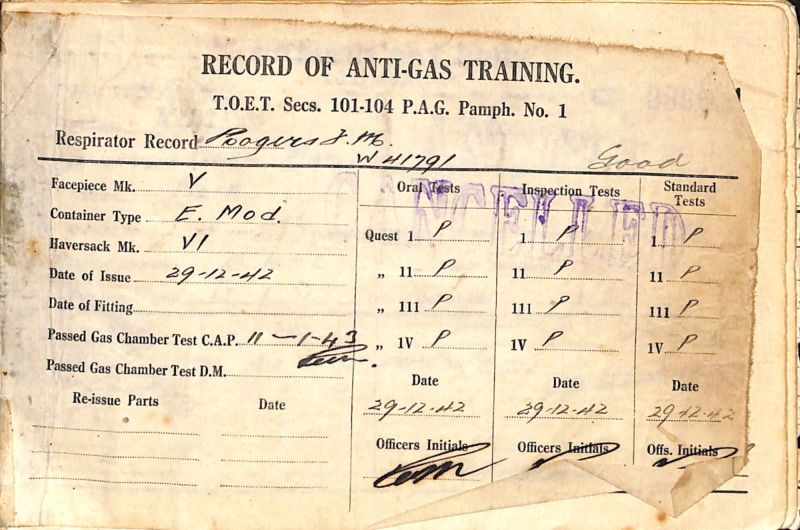 RECORD OF ANTI-GAS TRAINING.
T.O.E.T. Secs. 101-104 P.A.G. Pamph. No. 1
Respirator Record Rogers J. M.
W 41791
Good
Facepiece Mk. V
Container Type E. Mod.
Haversack Mk. VI
Date of Issue 29-12-42
Date of Fitting
Passed Gas Chamber Test C.A.P. 11-1-43
Passed Gas Chamber Test D.M.
Re-issue Parts Date
CANCELLED
Oral Tests Inspection Tests Standard Tests
Quest 1 P 1 P 1 P
„ 11 P 11 P 11 P
„ 111 P 111 P 111 P
„ 1V P 1V P 1V P
Date Date Date
29-12-42 29-12-42 29-12-42
Officers Initials Officers Initials Offs. Initials